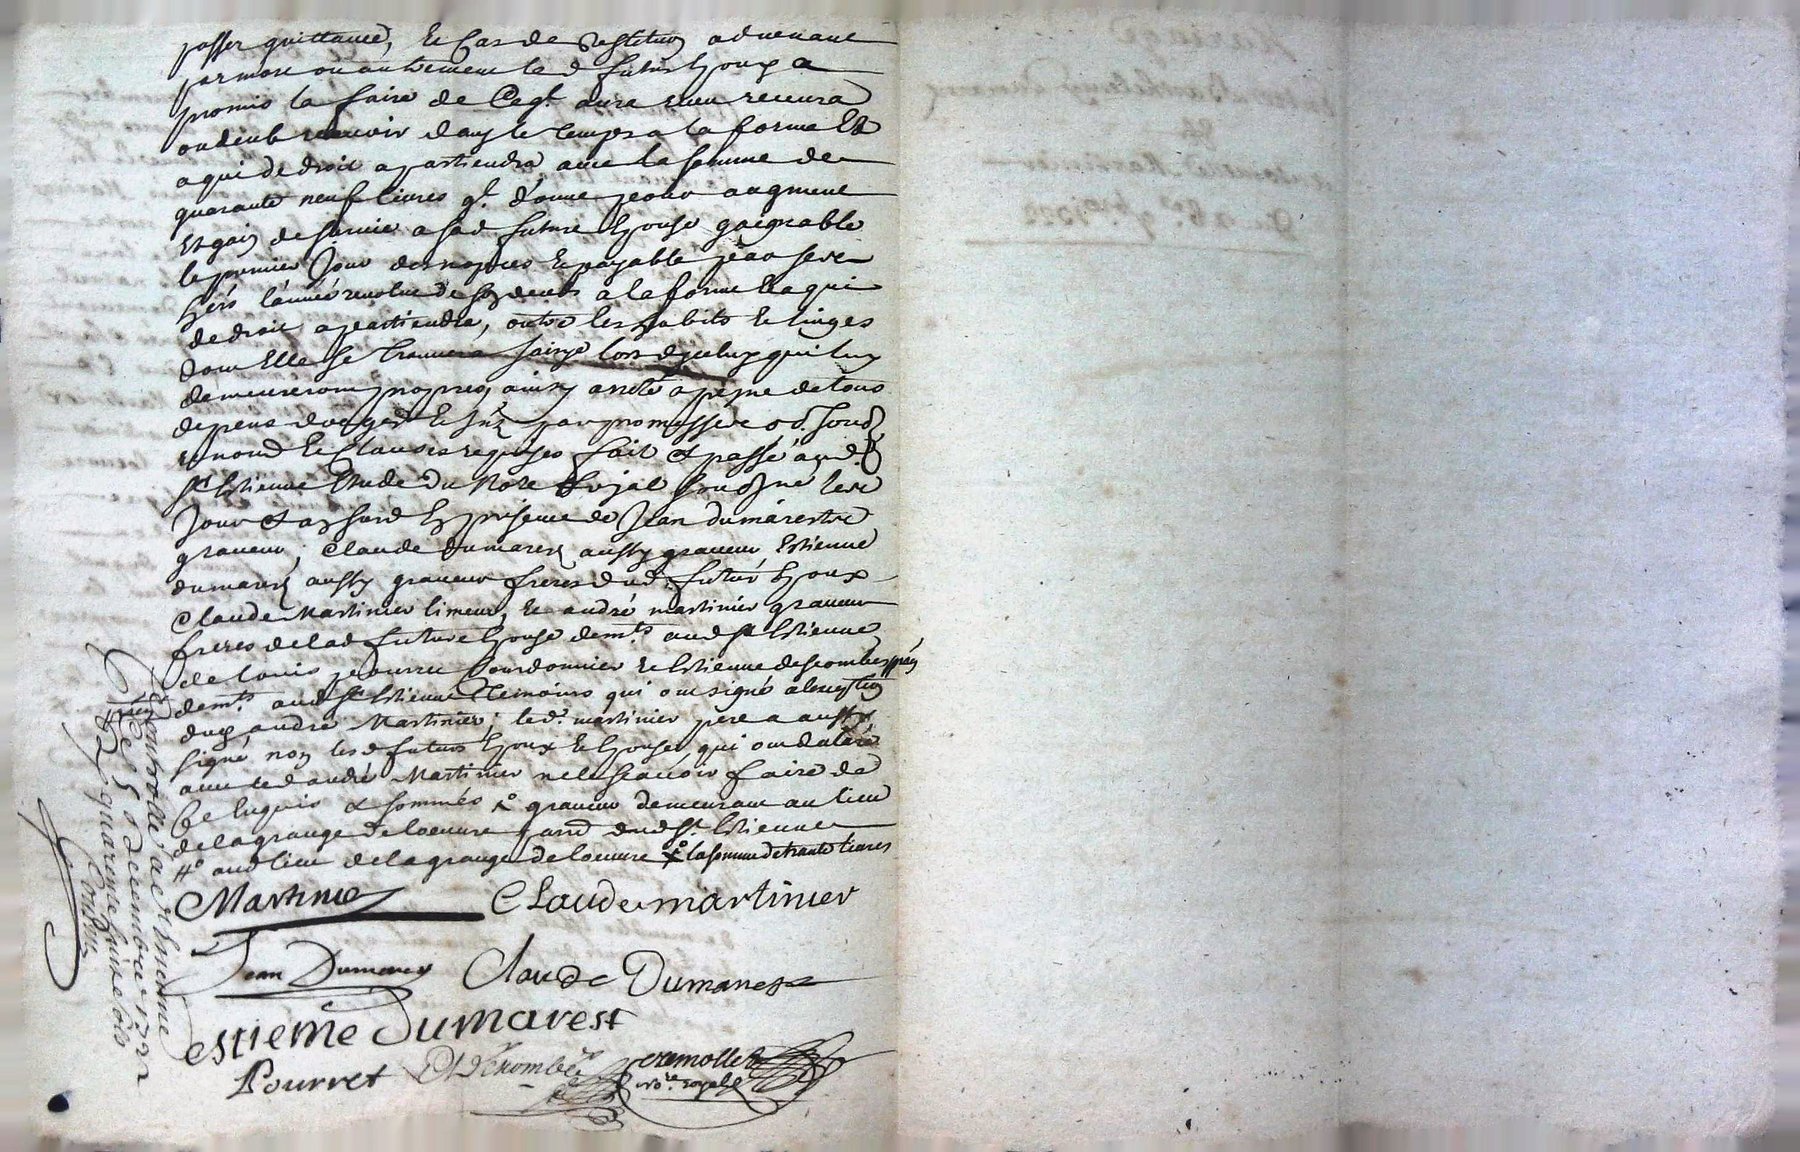 passer quittance, le cas de restituõn advenant
par mort ou autrement led futur Epoux a
promis la faire de ce ql aura eu receura
ou deub recevoir dans le temps a la forme Et
a qui de droit apartiendra, avec la somme de
quarante neuf livres ql donne pour augment
Et gain de survie a sad future Epouse gaignable
le premier Jour des nopces et payable par ses
hers l'année revolue de son deceds a la forme Et a qui
de droit apartiendra, outre les habits et linges
dont Elle se trouvera saisye lors d'iceluy qui luy
demeureront propres, ainsy arreté a peyne de tous
depens
renond et clauses requises fait & passé aud.
St Estienne Etude du Nore Royal soussigné les
Jour & an Susd En presence de Jean dumarest
graveur, Claude dumarest aussy graveur, Estienne
dumarest aussy graveur freres dud. futur Epoux
Claude Martinier limeur, et andré martinier graveur
freres de lad future Epouse demts aud St Estienne
de Louis pourret Courdonnier et Estienne descombes
demts aud St Estienne temoins qui ont signé a l'exeption
dud andré Martinier; led. martinier pere a aussy
signé, non lesd futurs Epoux et Epouse, qui ont declaré
avec led andré Martinier ne le scavoir faire de
ce Enquis & sommés x° graveur demeurant au lieu
de la grange de loeuvre dud St. Estienne
#° aud lieu de la grange de loeuvre x° la somme de trante livres
Martinier Claude martinier
Jean Dumarest Claude Dumarest
estieme dumarest
Pourret
nore royal
Controllé a St Etienne
le 5 decembre 1722
quarente huit sols